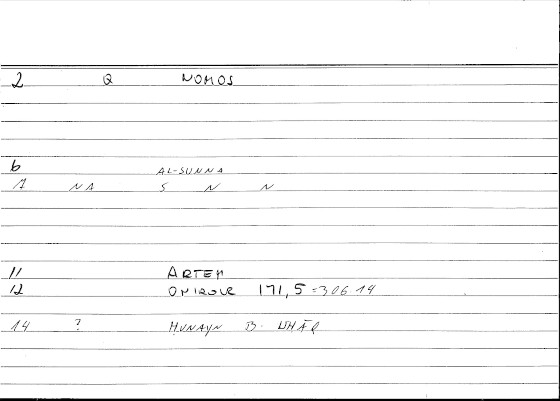 2 Q NOMOS
6 AL-SUNNA
1 NA S N N
11 ARTEM
12 OMIROUC 171,5 = 306 14
14 ? HUNAYN B. ISHĀQ